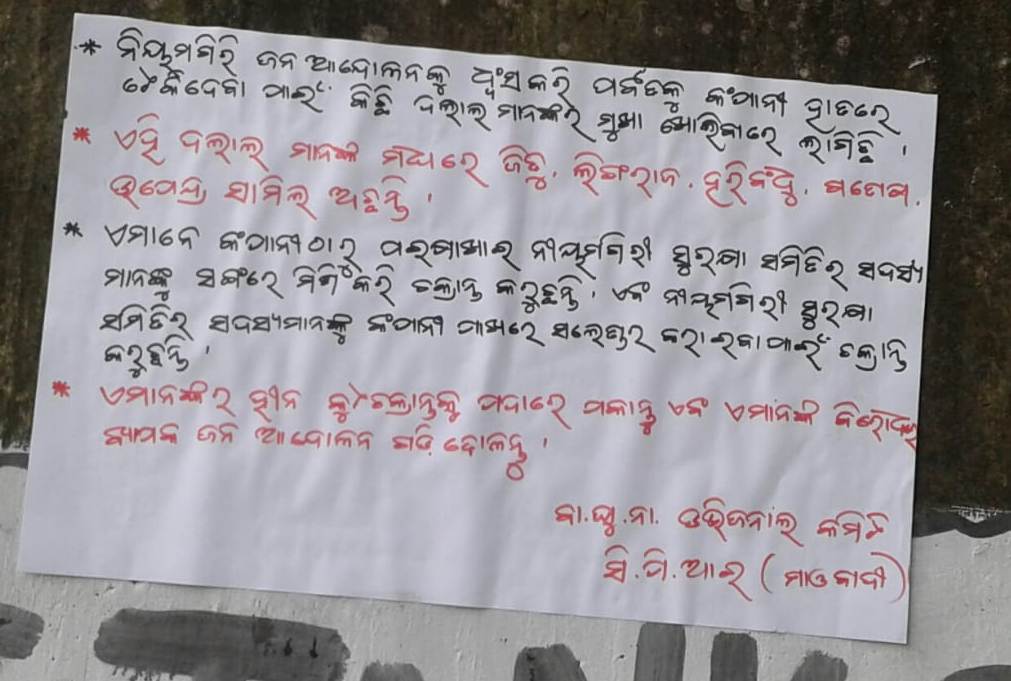 * ନିୟମଗିରି ଜନ ଆନ୍ଦୋଳନକୁ ଧ୍ୱଂସ କରି ପର୍ବତକୁ କଂପାନୀ ହାତରେ
ଟେକିଦେବା ପାଇଁ କିଛି ଦଲାଲ ମାନଙ୍କର ମୁଖା ଖୋଲିବାରେ ଲାଗିଛି ।
* ଏହି ଦଲାଲ ମାନଙ୍କ ମଧ୍ୟରେ ଜିତୁ, ଲିଙ୍ଗରାଜ, ହରିବଂଧୁ, ଗଣେଶ,
ଉପେନ୍ଦ୍ର ସାମିଲ ଅଛନ୍ତି ।
* ଏମାନେ କଂପାନୀଠାରୁ ପଇସାଖାଇ ନୀୟମଗିରୀ ସୁରକ୍ଷା ସମିତିର ସଦସ୍ୟ
ମାନଙ୍କୁ ସଙ୍ଗରେ ମିଶିକରି ଚକ୍ରାନ୍ତ କରୁଛନ୍ତି, ଏବଂ ନୀୟମଗିରୀ ସୁରକ୍ଷା
ସମିତିର ସଦସ୍ୟମାନଙ୍କୁ କଂପାନୀ ପାଖରେ ସଲେଣ୍ଡର କରାଇବାପାଇଁ ଚକ୍ରାନ୍ତ
କରୁଛନ୍ତି ।
* ଏମାନଙ୍କର ହୀନ କୁଚକ୍ରାନ୍ତକୁ ପଦାରେ ପକାନ୍ତୁ ଏବଂ ଏମାନଙ୍କ ବିରୋଧରେ
ବ୍ୟାପକ ଜନ ଆନ୍ଦୋଳନ ଗଢ଼ି ତୋଳନ୍ତୁ ।
ବା.ଘୁ.ନା. ଡିଭିଜନାଲ କମିଟି
ସି.ପି.ଆଇ (ମାଓବାଦୀ)